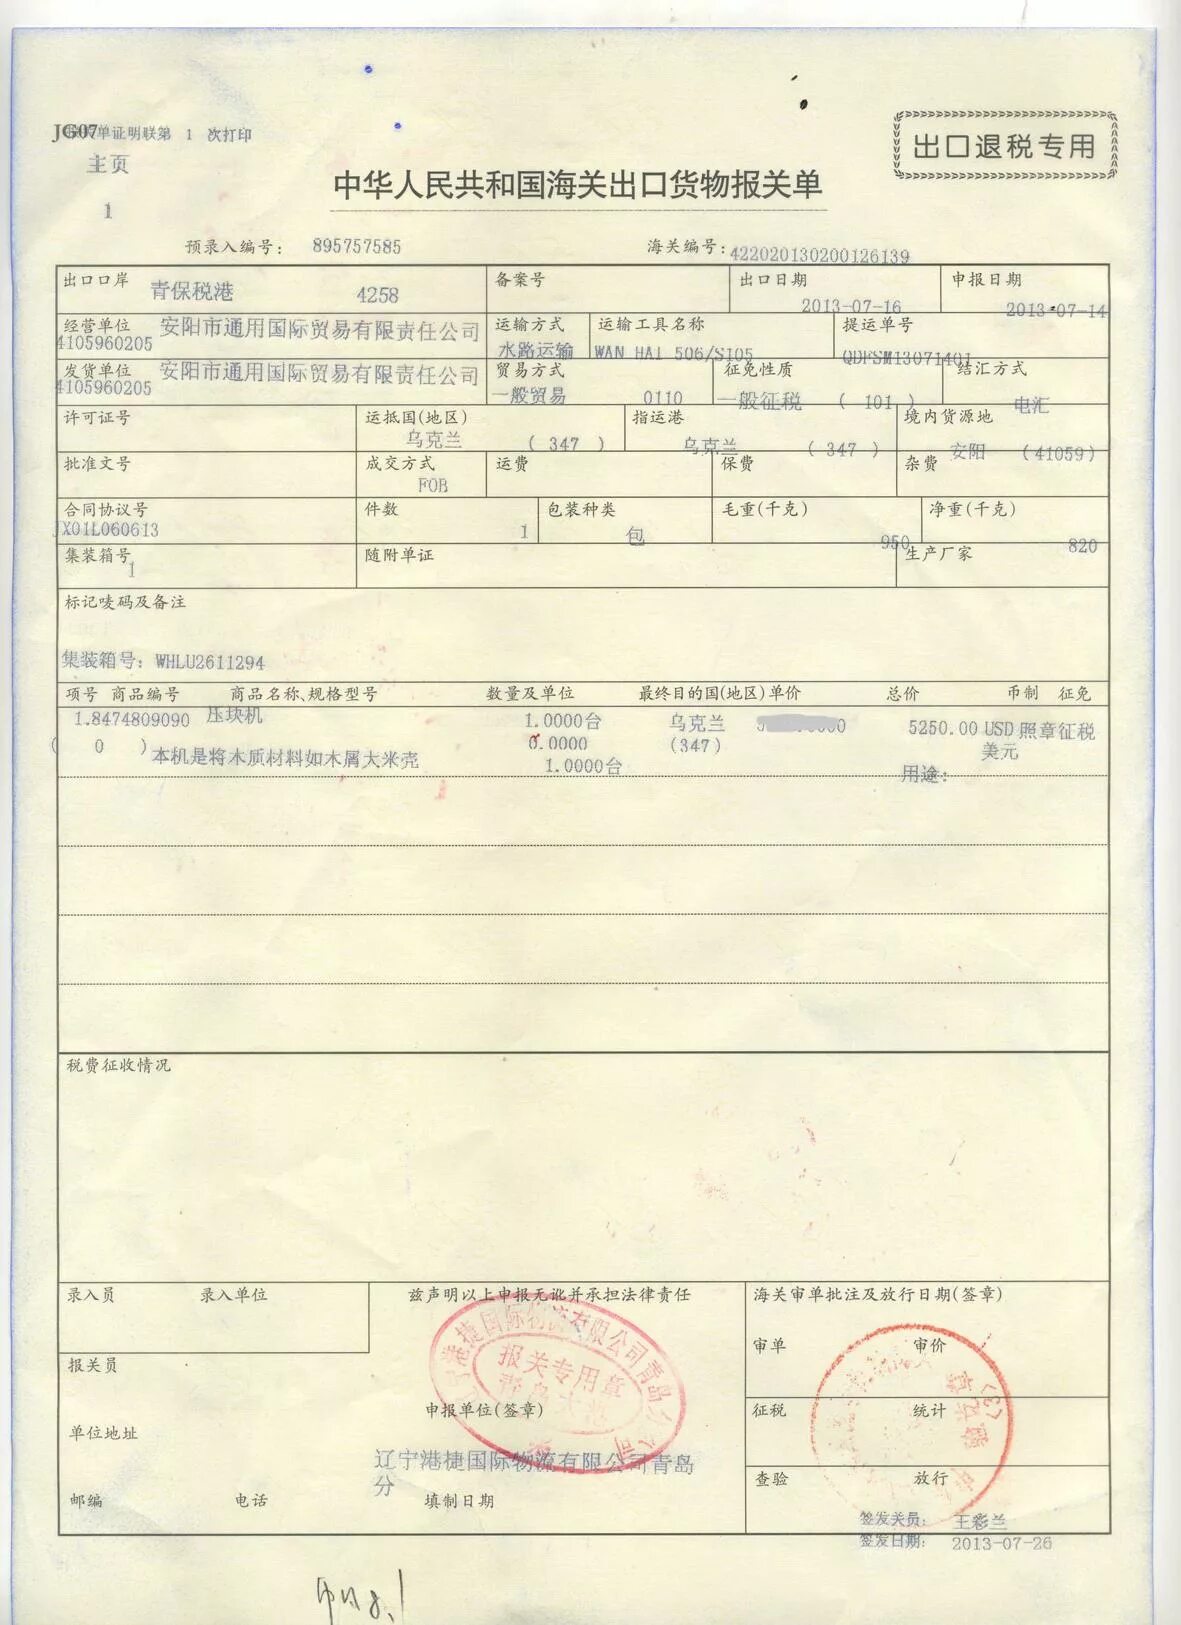 JG07 单证明联第 1 次打印
主页
1
出口退税专用
中华人民共和国海关出口货物报关单
预录入编号: 895757585 海关编号: 422020130200126139
出口口岸 青保税港 4258 备案号 出口日期 2013-07-16 申报日期 2013-07-14
经营单位 安阳市通用国际贸易有限责任公司 4105960205 运输方式 水路运输 运输工具名称 WAN HAI 506/S105 提运单号 QDFSM13071401
发货单位 安阳市通用国际贸易有限责任公司 4105960205 贸易方式 一般贸易 0110 征免性质 一般征税 ( 101 ) 结汇方式 电汇
许可证号 运抵国(地区) 乌克兰 ( 347 ) 指运港 乌克兰 ( 347 ) 境内货源地 安阳 (41059)
批准文号 成交方式 FOB 运费 保费 杂费
合同协议号 JX01L060613 件数 1 包装种类 包 毛重(千克) 950 净重(千克) 820
集装箱号 1 随附单证 生产厂家
标记唛码及备注
集装箱号: WHLU2611294
项号 商品编号 商品名称、规格型号 数量及单位 最终目的国(地区) 单价 总价 币制 征免
1.8474809090 压块机 1.0000台 乌克兰 5250.00 USD 照章征税
( 0 ) 0.0000 (347) 美元
本机是将木质材料如木屑大米壳 1.0000台 用途:
税费征收情况
录入员 录入单位 兹声明以上申报无讹并承担法律责任 海关审单批注及放行日期(签章)
港捷国际物流有限公司青岛分公司
报关专用章
审单 审价
报关员
申报单位(签章) 征税 统计
单位地址
辽宁港捷国际物流有限公司青岛
分
查验 放行
邮编 电话 填制日期
签发关员: 王彩兰
签发日期: 2013-07-26